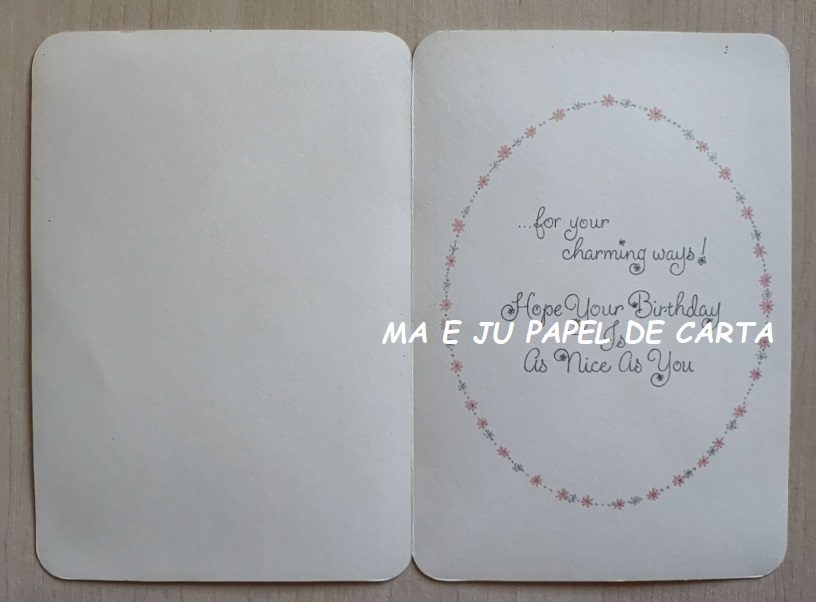 ...for your
charming ways!
Hope Your Birthday
Is
As Nice As You
MA E JU PAPEL DE CARTA